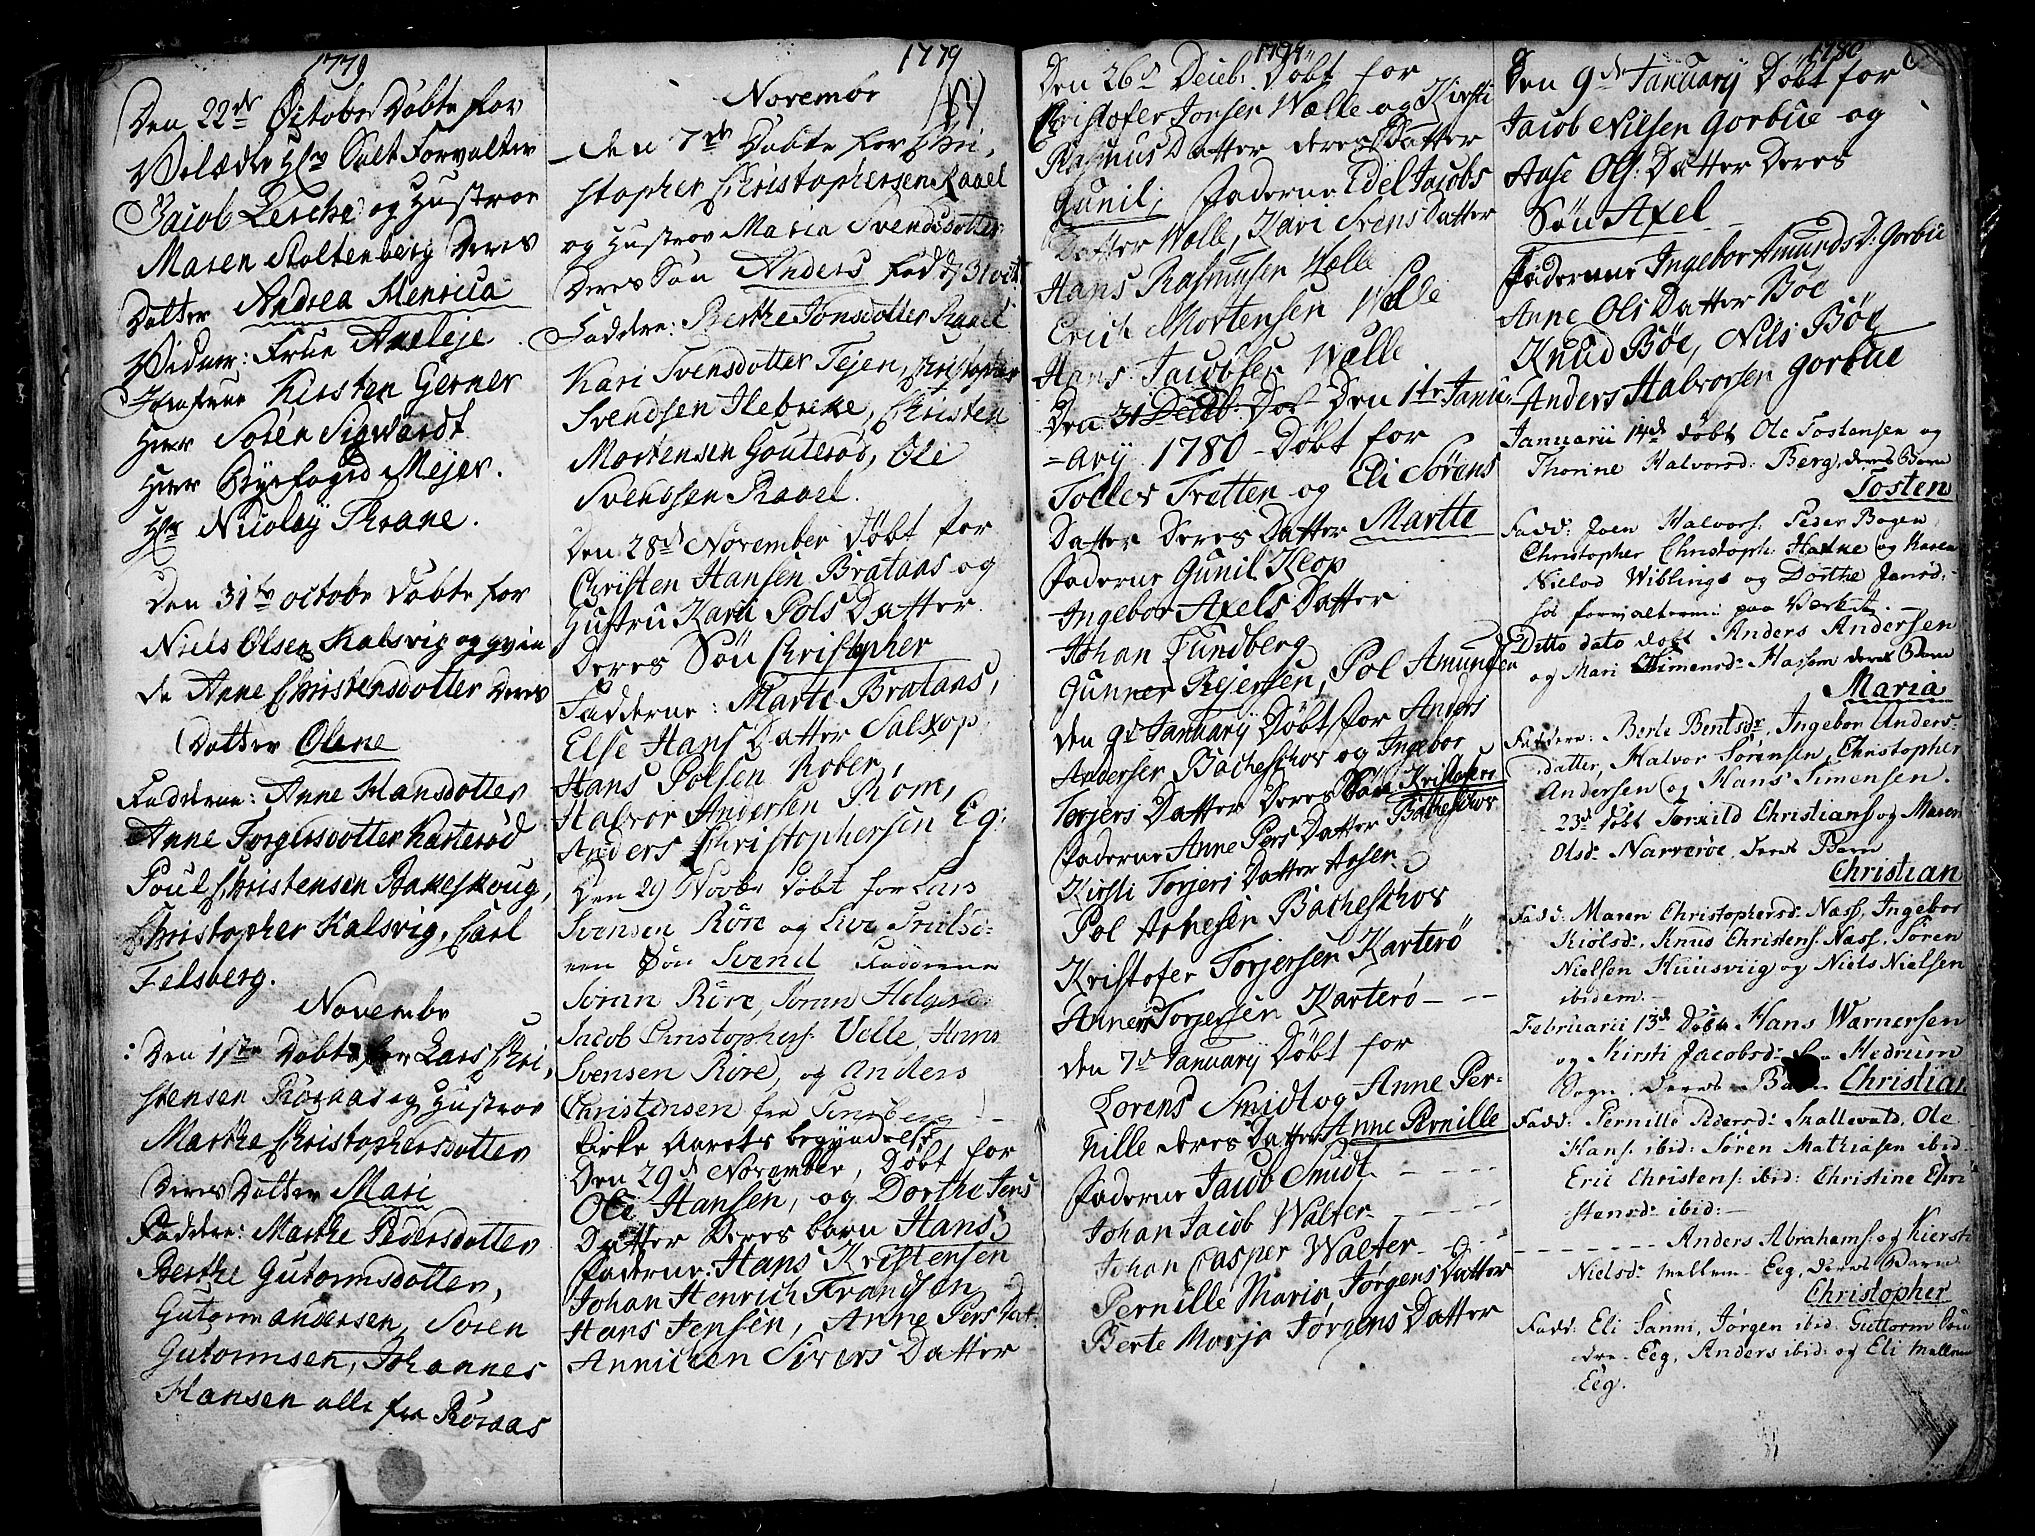 1779
Den 22de Octobr Døbte for
Velædle Hr Salt Forvalter
Jacob Lerche og Hustroe
Maren Stoltenberg Deres
Datter Andrea Menrica
Vidner: Frue Anleje
Jomfrue Kirsten Gerner
Herr Soren Sigwardt
Herr Byefogid Mejer.
Hr Nicolaÿ Thrane.
Den 31te octobr døbte for
Niels Olsen Kalsvig og qvin
de Anne Christensdotter Deres
Dotter Olene
Fadderne: Anne Hansdotter
Anne Torgersdotter Karterød
Poul Christensen Bakeskoug,
Christopher Kalsvig, Carl
Felsberg.
Novembr
Den 1ste Døbte for Lars Chri,
stensen Røraas og Hustroe
Marthe Christophersdotter
Deres Dotter Mari
Faddere: Marthe Pedersdotter
Berthe Gutormsdotter,
Gutorm andersen, Soren
Gutormsen, Johannes
Hansen alle fra Røraas
1779
Novembr
Den 7de Døbte for Chri,
stopher Christophersen Raael
og Hustroe Maria Svendsdotter
Deres Søn Anders fød d 31 oct
Faddere: Berthe Jonsdotter Raael
Kari Svensdotter Tejen, Christopher
Svendsen Ilebreke, Christen
Mortensen Gouterød, Ole
Svendsen Raael.
Den 28d November Døbt for
Christen Hansen Brataas og
Hustru Karu Pols Datter
Deres Søn Christopher
Fadderne: Marte Brataas,
Else Hans Datter Saltkop
Hans Polsen Rober,
Halvor Andersen Rom,
Anders Christophersen Eg:
Den 29 Novbr døbt for Lars
Svensen Röre og Live Truls
een Søn Svend Fadderne
Søran Röre, Søran Holgers
Jacob Christophers: Velle, Hans
Svensen Röre, og anders
Christensen fra Tønsberg
Kirke Aarets begyndelse
Den 29d November, Døbt for
Ole Hansen, og Dorthe Jens
Datter Deres barn Hans
Faderne: Hans Kristensen
Johan Henrich Frandsen
Hans Jensen, Anne Pers Dat:
Annichen Sivers Datter
1779
Den 26d Deceb: Døbt for
Cristofer Jonsen Wælle og Kirsti
Rasmus Datter deres Datter
Gunil; Faderne Edel Jacobs
Datter Wælle, Kari Svens Datter
Hans Rasmusen Wælle
Erich Mortensen Wælle
Hans Jacobsen Wælle
Den 31 Deceb: Døbt Den 1te Janu
-ary 1780 Døbt for
Tolles Tretten og Eli Sørens
Datter Deres Datter Martte
Faderne Gunil Klop
Ingebor Axels Datter
Johan Lundberg
Gunner Rejersen, Pol Amunsen
den 9d January Døbt for Anders
Andersen Bacheschov og Ingebor
Torjers Datter Deres Søn Kristofer
Faderne Anne Pers Datter Bacheschov
Kirsti Torjers Datter Aasen
Pol Arnesen Bacheschov
Kristofer Torjersen Karterø
Annen Torjersen Karterø - - -
den 7d January Døbt for
Lorens Smidt og Anne Per-
nille deres Datter Anne Pernille
Faderne Jacob Smidt - - - -
Johan Jacob Walter - - - -
Johan Casper Walter - - -
Pernille Maria Jørgens Datter
Berte Marja Jørgens Datter
1780
Den 9de January Døbt for
Jacob Nilsen Gorbue og
Aase Ols: Datter Deres
Søn Axel
Faderne Ingebor Amunds D: Gorbue
Anne Ols Datter Böe
Knud Böe, Nils Böe
Anders Halvorsen Gorbue
Januarii 14de døbt Ole Tostensen og
Thorine Halvorsd: Berg, deres Barn
Tosten
Fadd: Joen Halvors: Peder Bogen
Christopher Christoph: Havne og Karen
Nielsd Wiblings og Dorthe Jansd:
hos forvalteren paa Værket.
Ditto dato døbt Anders Andersen
og Mari Simensd: Hassem deres Barn
Maria
Faddere: Berte Bentsdr, Ingebor Anders-
datter, Halvor Sørensen, Christopher
Andersen og Hans Simensen.
- - - 23d døbt Torkild Christians: og Maren
Olsd: Narverøe, deres Barn
Christian
Fadd: Maren Christophersd: Næss, Ingebor
Kiølsd:, Knus Christens: Næss, Søren
Nielsen Huusviig og Niels Nielsen
ibidem.
Februarii 13d Døbt Hans Warnersen
og Kirsti Jacobsd: fra Hedrum
Sogn, deres Barn Christian
Fadd: Pernille Pedersd: Skallevold, Ole
Hans: ibid: Søren Mathiasen ibid:
Eric Christens: ibid: Christine Chri
stensd: ibid:
- - - - - - - Anders Abrahams: og Kiersti
Nielsd: mellem Eeg, deres Barn
Christopher
Fadd: Eli Sanni, Jørgen ibid: Guttorm
dre Eeg, Anders ibid: og Eli mellem
Eeg.